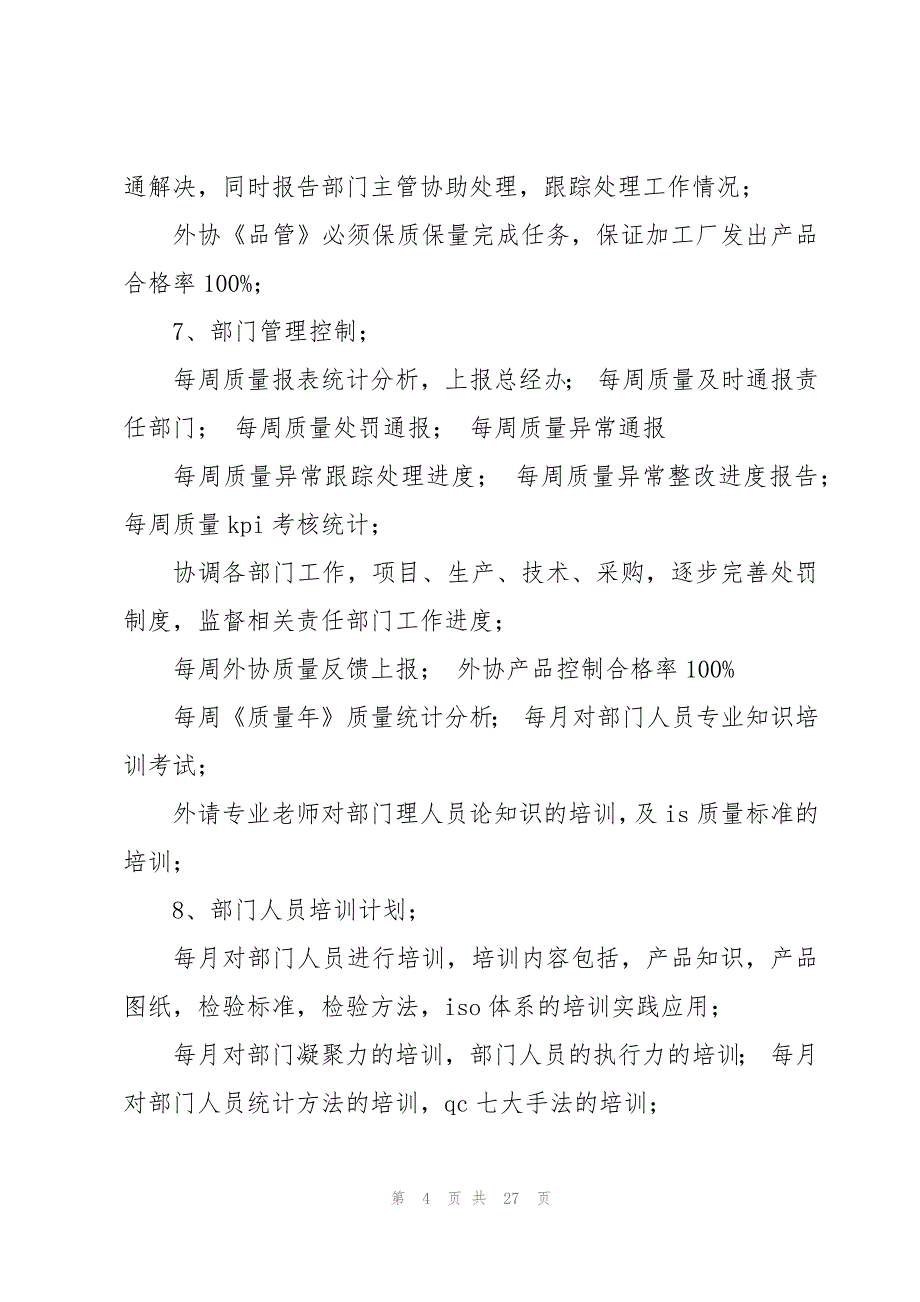 通解决，同时报告部门主管协助处理，跟踪处理工作情况；
外协《品管》必须保质保量完成任务，保证加工厂发出产品
合格率 100%；
7、部门管理控制；
每周质量报表统计分析，上报总经办； 每周质量及时通报责
任部门； 每周质量处罚通报； 每周质量异常通报
每周质量异常跟踪处理进度； 每周质量异常整改进度报告；
每周质量 kpi 考核统计；
协调各部门工作，项目、生产、技术、采购，逐步完善处罚
制度，监督相关责任部门工作进度；
每周外协质量反馈上报； 外协产品控制合格率 100%
每周《质量年》质量统计分析； 每月对部门人员专业知识培
训考试；
外请专业老师对部门理人员论知识的培训，及 is 质量标准的
培训；
8、部门人员培训计划；
每月对部门人员进行培训，培训内容包括，产品知识，产品
图纸，检验标准，检验方法，iso 体系的培训实践应用；
每月对部门凝聚力的培训，部门人员的执行力的培训； 每月
对部门人员统计方法的培训，qc 七大手法的培训；
第 4 页 共 27 页